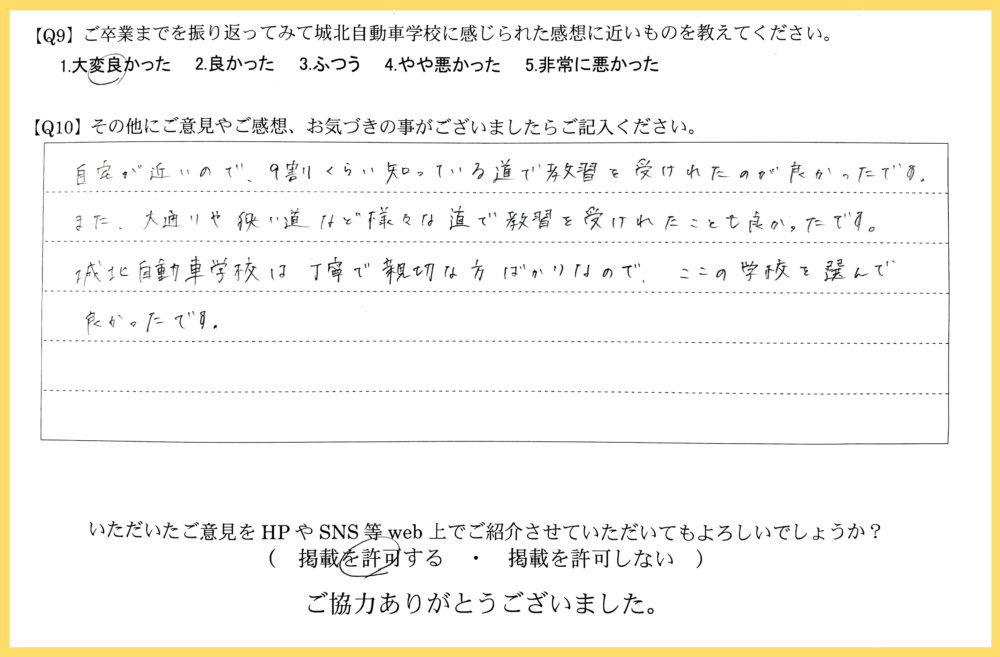 【Q9】ご卒業までを振り返ってみて城北自動車学校に感じられた感想に近いものを教えてください。
1.大変良かった 2.良かった 3.ふつう 4.やや悪かった 5.非常に悪かった
【Q10】その他にご意見やご感想、お気づきの事がございましたらご記入ください。
自宅が近いので、9割くらい知っている道で教習を受けれたのが良かったです。
また、大通りや狭い道など様々な道で教習を受けれたことも良かったです。
城北自動車学校は丁寧で親切な方ばかりなので、ここの学校を選んで
良かったです。
いただいたご意見をHPやSNS等web上でご紹介させていただいてもよろしいでしょうか？
（ 掲載を許可する ・ 掲載を許可しない ）
ご協力ありがとうございました。